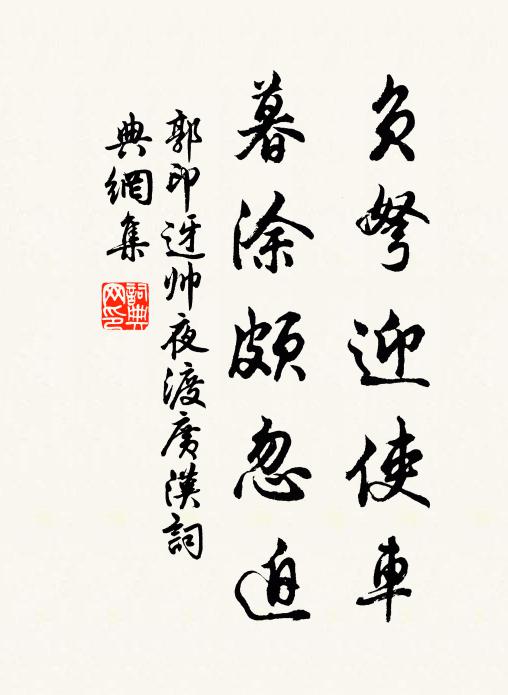 负弩迎使车
暮涂颇忽迫
郭印迓帅夜渡广汉词
典網集
詞典
网印